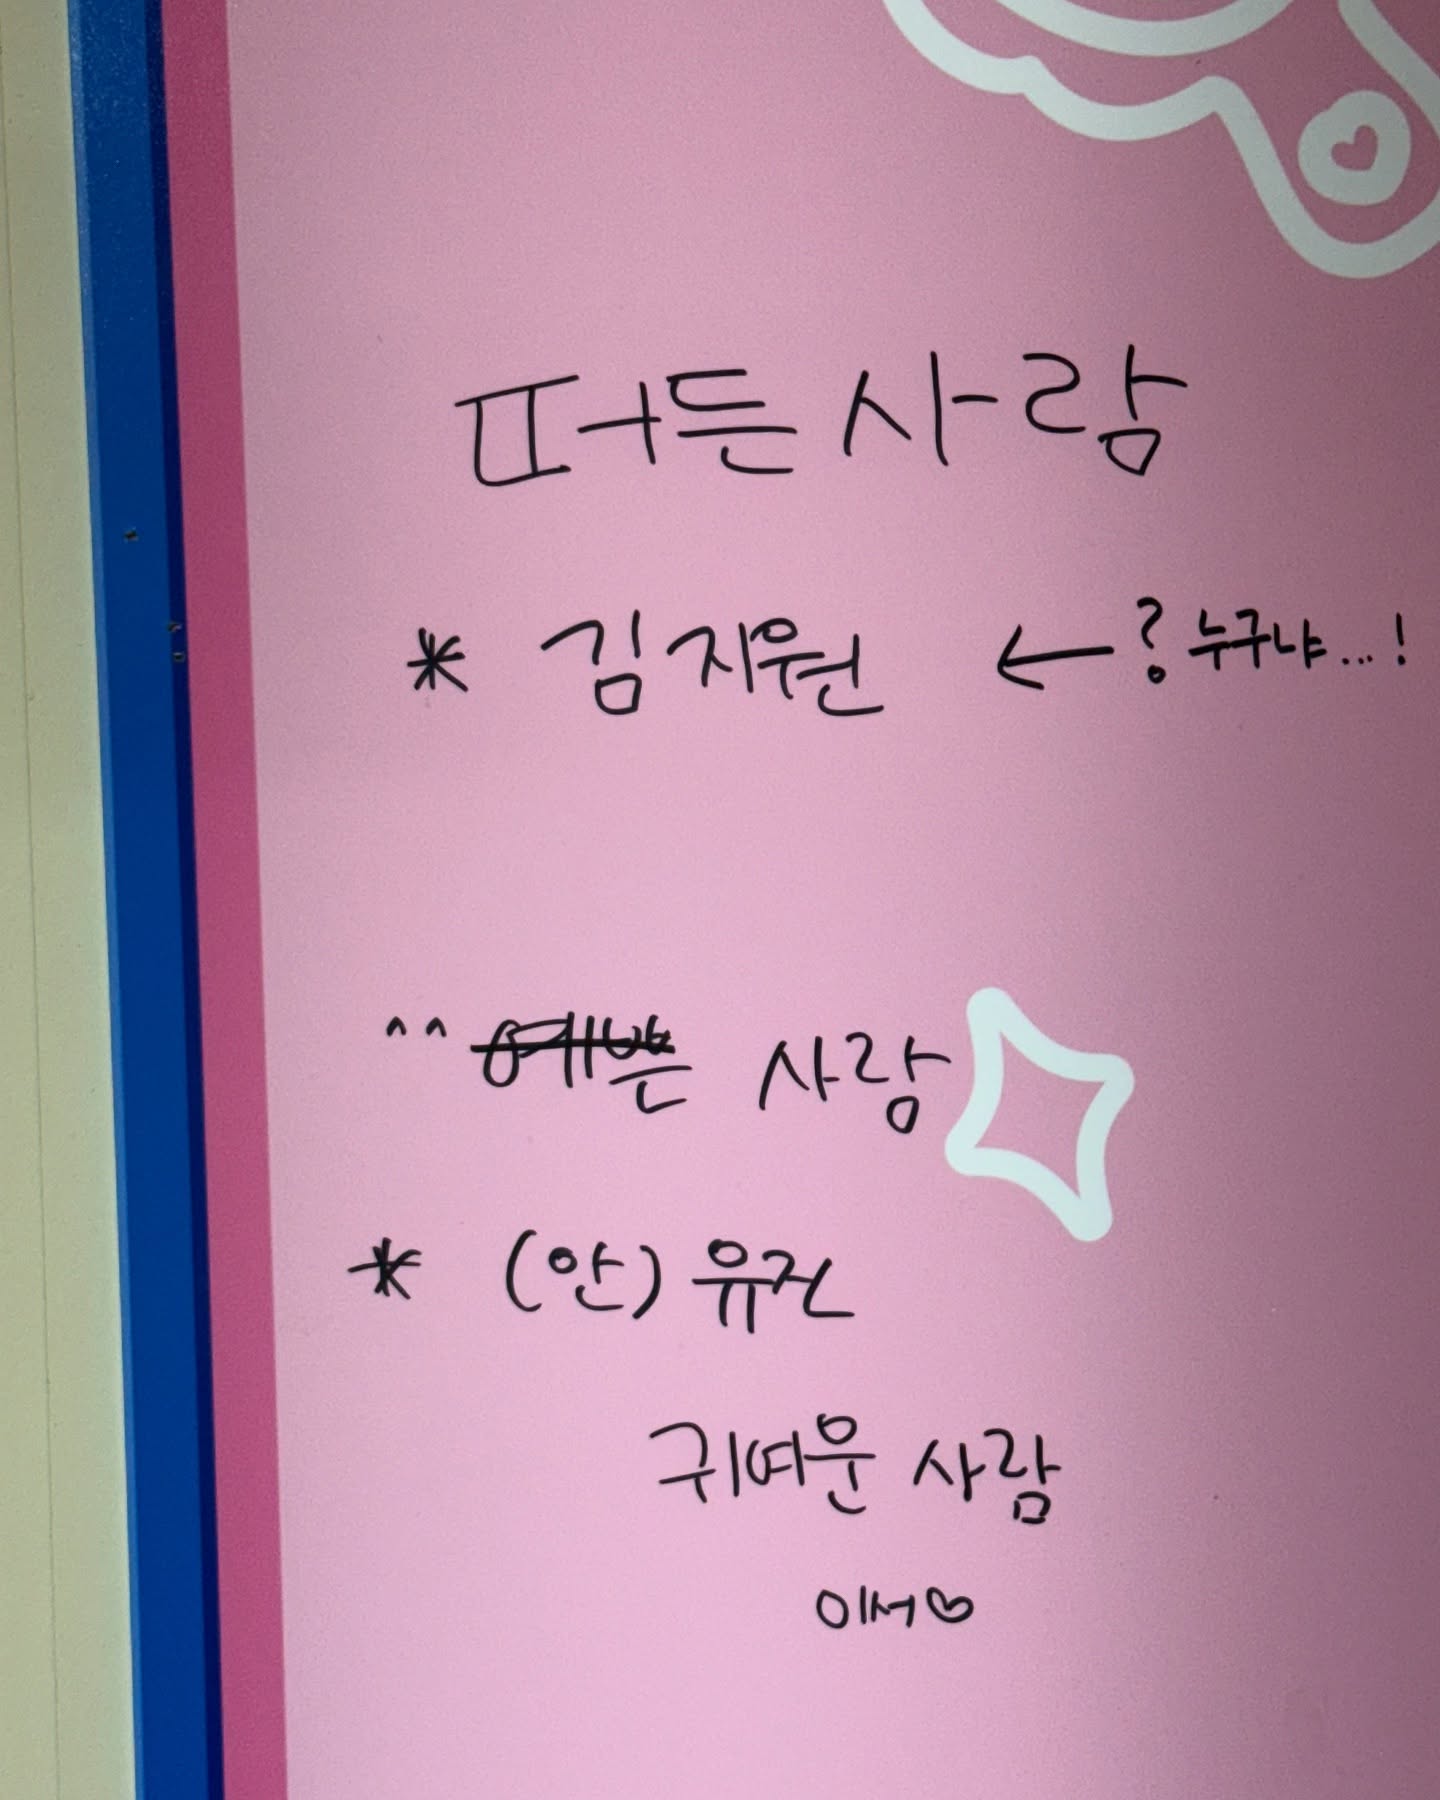 떠든 사람
* 김지원 ← ? 누구냐...!
^^ 예쁜 사람
* (안)유진
귀여운 사람
이서♡